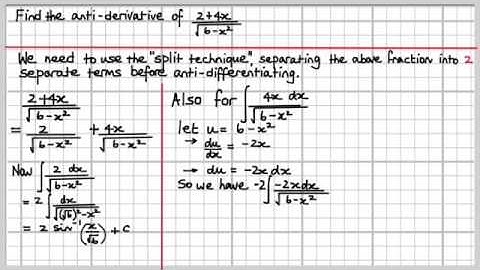 Find the anti-derivative of (2+4x)/√(6-x²)
We need to use the "split technique", separating the above fraction into 2
separate terms before anti-differentiating.
(2+4x)/√(6-x²)
= 2/√(6-x²) + 4x/√(6-x²)
Now ∫ 2 dx/√(6-x²)
= 2 ∫ dx/√((√6)²-x²)
= 2 sin⁻¹(x/√6) + c
Also for ∫ 4x dx/√(6-x²)
let u = 6-x²
→ du/dx = -2x
→ du = -2x dx
So we have -2∫ -2x dx/√(6-x²)